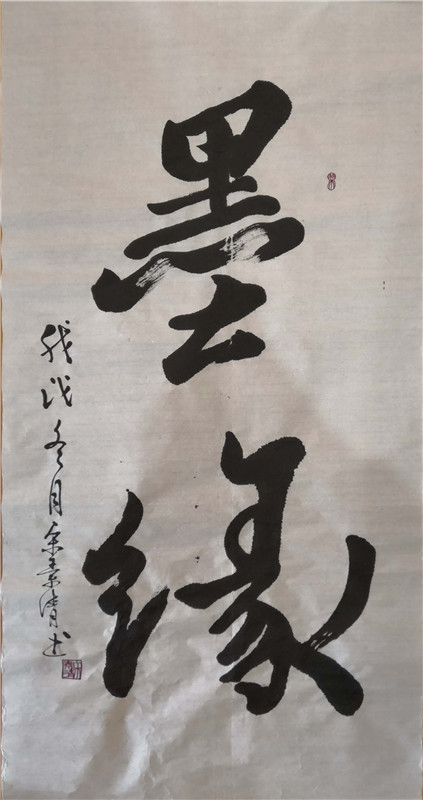 墨缘
戊戌冬月余景清书